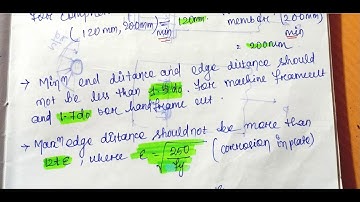 (120mm, 200mm)min = 120mm member (200mm)min
= 200mm
→ Minᵐ end distance and edge distance should
not be less than 1.5do for machine frame cut
and 1.7do for handframe cut.
→ Maxᵐ edge distance should not be more than
12tε, where ε = √250/fy (corrosion in plate)